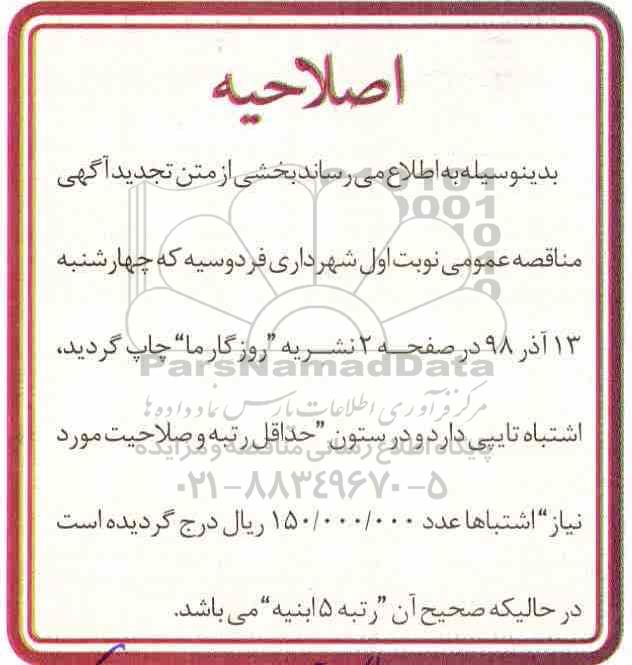 اصلاحیه
بدینوسیله به اطلاع می رساند بخشی از متن تجدید آگهی
مناقصه عمومی نوبت اول شهرداری فردوسیه که چهارشنبه
۱۳ آذر ۹۸ در صفحه ۲ نشریه "روزگار ما" چاپ گردید،
ParsNamadData
مرکز فرآوری اطلاعات پارس نماد داده ها
اشتباه تایپی دارد و در ستون "حداقل رتبه و صلاحیت مورد
پایگاه اطلاع رسانی مناقصه و مزایده
۰۲۱-۸۸۳۴۹۶۷۰-۵
نیاز" اشتباها عدد ۱۵۰/۰۰۰/۰۰۰ ریال درج گردیده است
در حالیکه صحیح آن "رتبه ۵ ابنیه" می باشد.